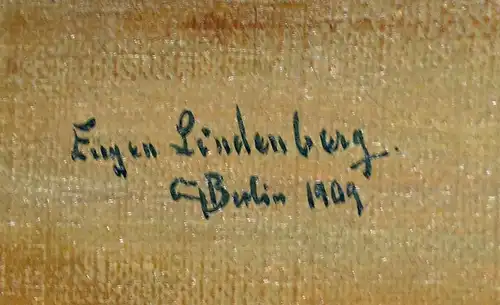 Eugen Lindenberg.
Berlin 1909